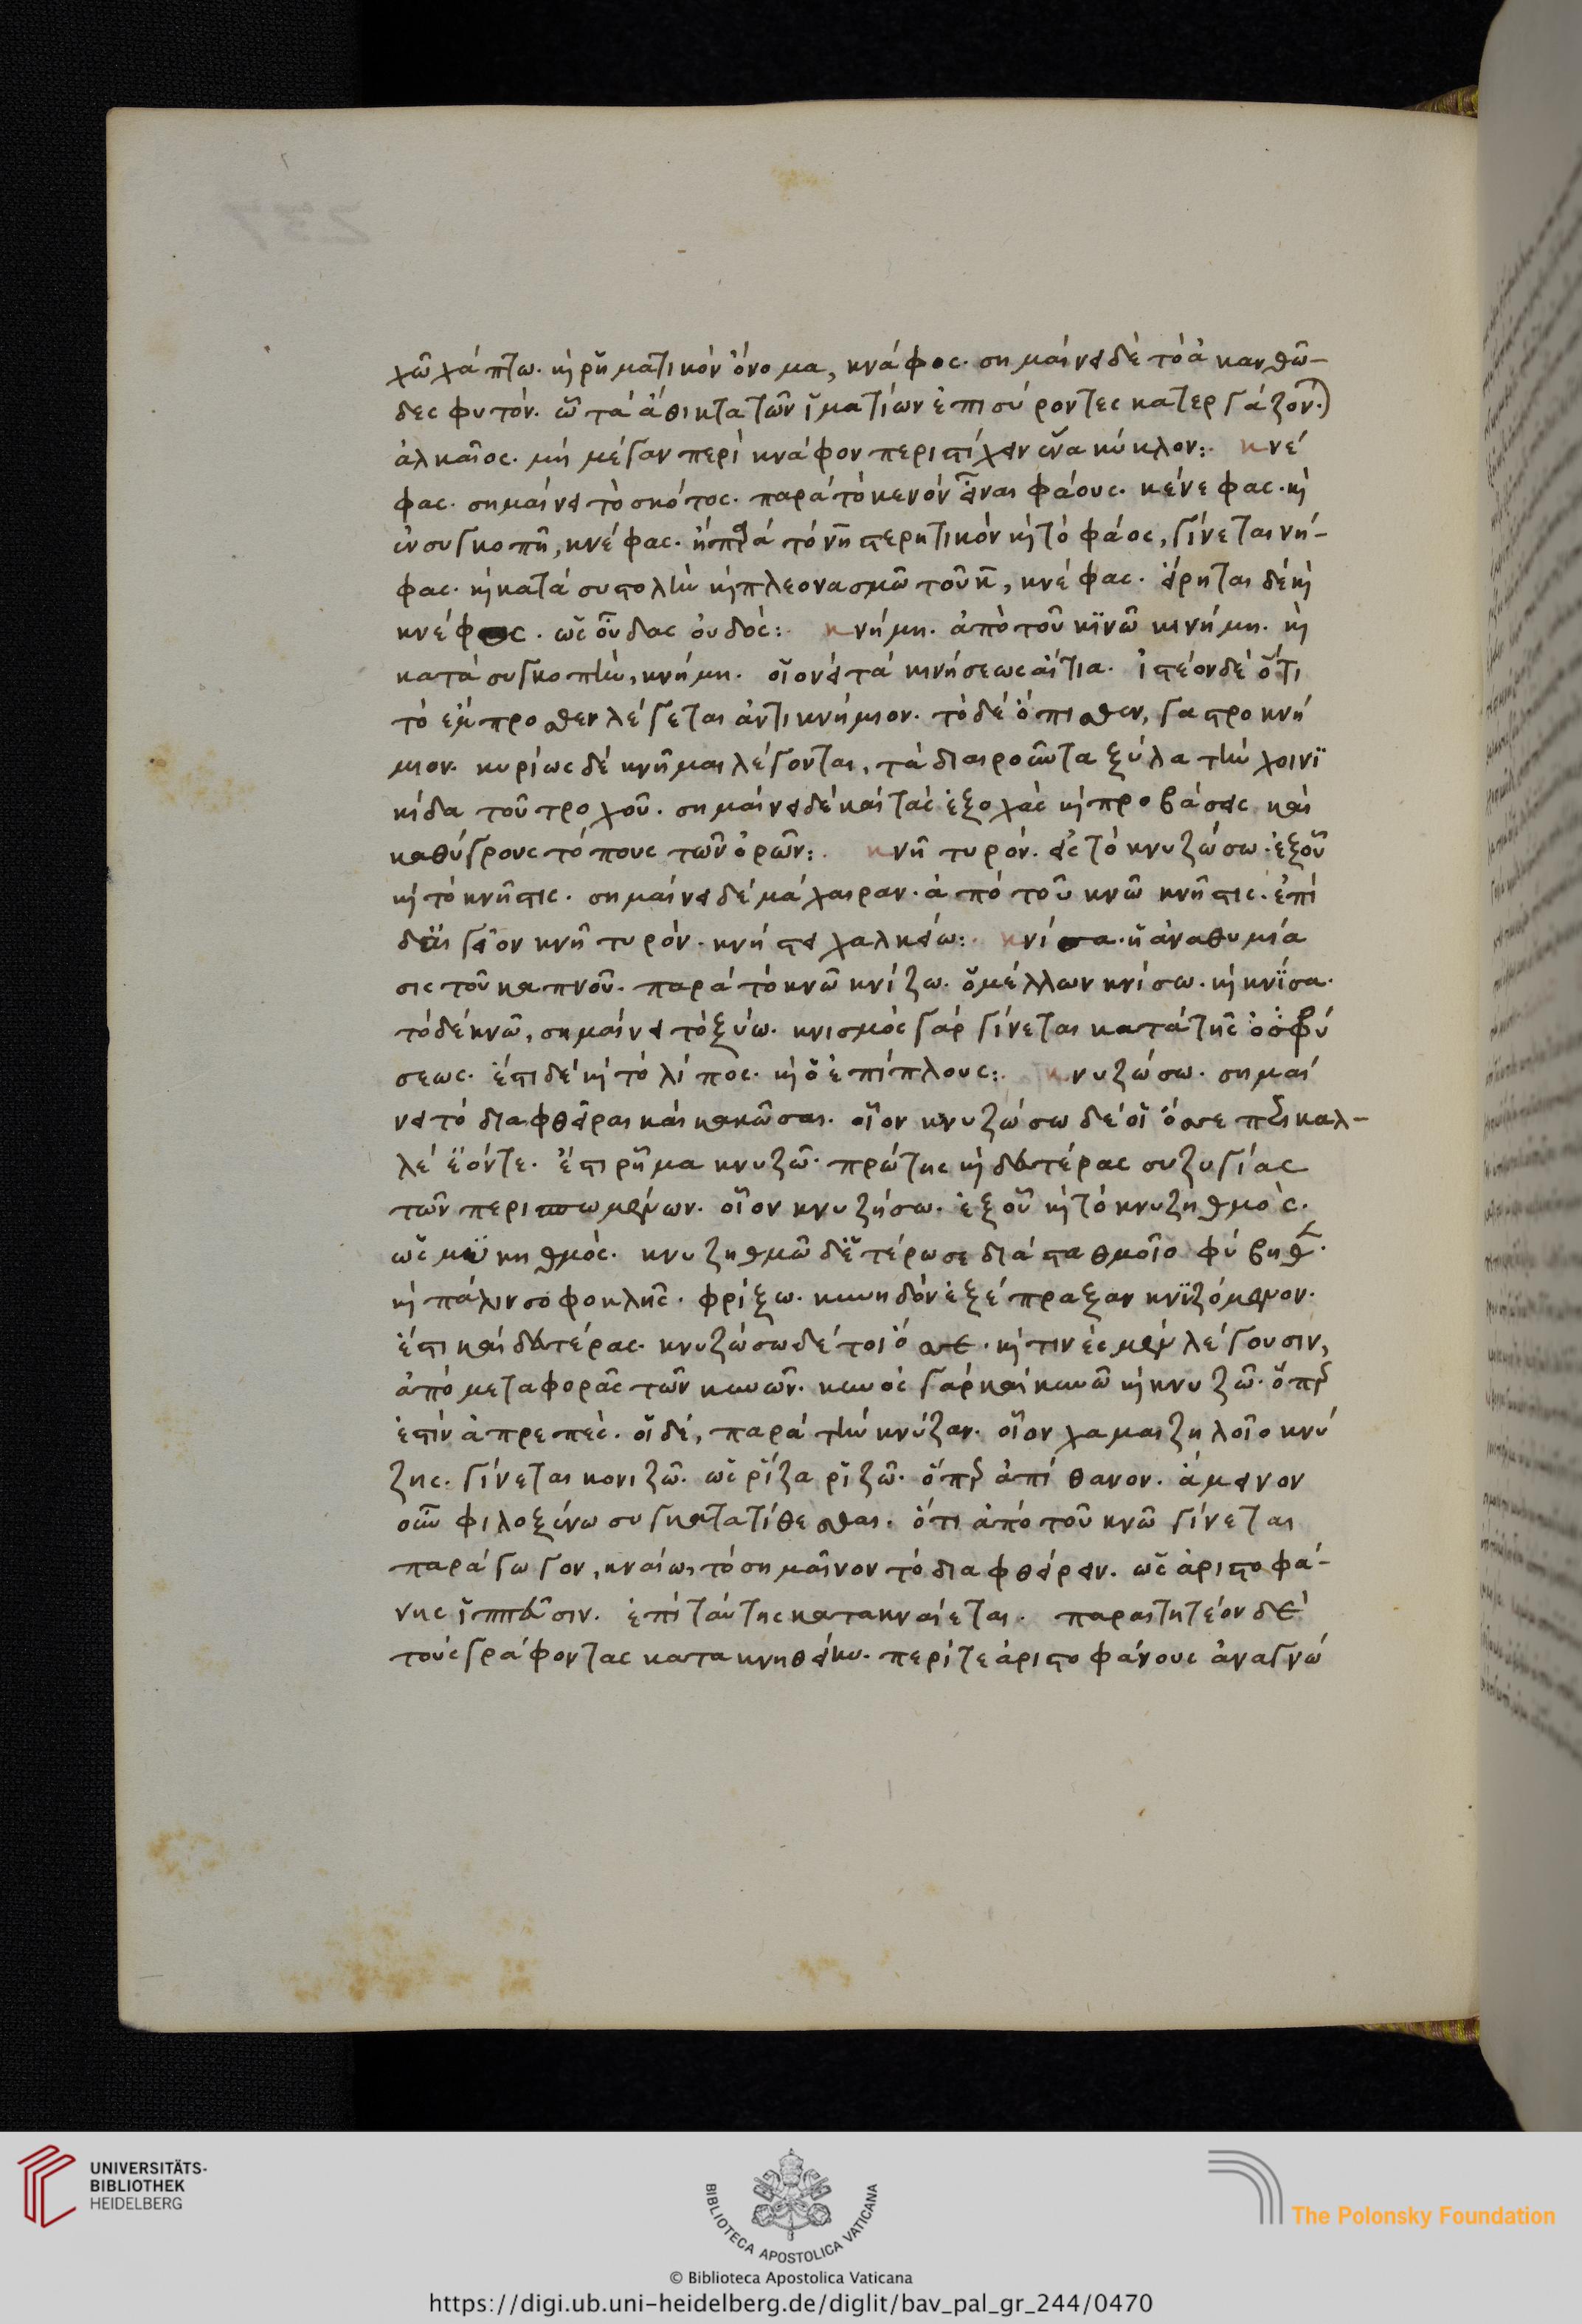 χῶ χάπτω. καὶ ῥηματικὸν ὄνομα, κνάφος. σημαίνει δὲ τὸ ἀκανθῶ-
δες φυτόν. ᾧ τὰ ἄθικτα τῶν ἱματίων ἐπισύροντες κατεργάζον.)
ἀλκαῖος. μὴ μέγαν περὶ κνάφον περιστίχειν ἕνα κύκλον:. κνέ
φας. σημαίνει τὸ σκότος. παρὰ τὸ κενὸν εἶναι φάους. κένεφας. καὶ
ἐν συγκοπῆ, κνέφας. ἢ παρὰ τὸ νη στερητικὸν καὶ τὸ φάος, γίνεται νή-
φας. καὶ κατὰ συστολὴν καὶ πλεονασμῶ τοῦ κ, κνέφας. εἴρηται δὲ καὶ
κνέφος. ὡς οὖδας οὐδός:. κνήμη. ἀπὸ τοῦ κινῶ κινήμη. καὶ
κατὰ συγκοπὴν, κνήμη. οἱονεὶ τὰ κινήσεως αἴτια. ἰστέον δὲ ὅτι
τὸ ἔμπροσθεν λέγεται ἀντικνήμιον. τὸ δὲ ὄπισθεν, γαστροκνή
μιον. κυρίως δὲ κνῆμαι λέγονται, τὰ διαιροῦντα ξύλα τὴν χοινι
κίδα τοῦ τροχοῦ. σημαίνει δὲ καὶ τὰς ἐξοχὰς καὶ προβάσεις καὶ
καθύγρους τόπους τῶν ὀρῶν:. κνῆ τυρόν. εἰς τὸ κνυζώσω. ἐξοῦ
καὶ τὸ κνῆστις. σημαίνει δὲ μάχαιραν. ἀπὸ τοῦ κνῶ κνῆστις. ἐπὶ
δ' αἴγειον κνῆ τυρόν. κνήστει χαλκείω:. κνίσα. ἡ ἀναθυμία
σις τοῦ καπνοῦ. παρὰ τὸ κνῶ κνίζω. ὁ μέλλων κνίσω. καὶ κνῖσα.
τὸ δὲ κνῶ, σημαίνει τὸ ξύω. κνισμὸς γὰρ γίνεται κατὰ τῆς ὀσφύ
σεως. ἔστι δὲ καὶ τὸ λίπος. καὶ ὁ ἐπίπλους:. κνυζώσω. σημαί
νει τὸ διαφθεῖραι καὶ κακῶσαι. οἷον κνυζώσω δέ οἱ ὄσσε πάρος καλ-
λέ' ἐόντε. ἔστι ῥῆμα κνυζῶ. πρώτης καὶ δευτέρας συζυγίας
τῶν περισπωμένων. οἷον κνυζήσω. ἐξοῦ καὶ τὸ κνυζηθμός.
ὡς μυκηθμός. κνυζηθμῶ δ' ἑτέρωσε διὰ σταθμοῖο φύβηθεν.
καὶ πάλιν σοφοκλῆς. φρίξω. κυνηδὸν ἐξέπραξαν κνυζόμενον.
ἔστι καὶ δευτέρας. κνυζώσω δέ τοι ὄσσε. καὶ τινὲς μὲν λέγουσιν,
ἀπὸ μεταφορᾶς τῶν κυνῶν. κυνὸς γὰρ καὶ κυνῶ καὶ κνυζῶ. ὅπερ
ἐστὶν ἀπρεπές. οἱ δέ, παρὰ τὴν κνύζαν. οἷον χαμαιζηλοῖο κνύ
ζης. γίνεται κονιζῶ. ὡς ῥίζα ῥιζῶ. ὅπερ ἀπίθανον. ἄμεινον
οὖν φιλοξένω συγκατατίθεσθαι. ὅτι ἀπὸ τοῦ κνῶ γίνεται
παράγωγον, κναίω, τὸ σημαῖνον τὸ διαφθείρειν. ὡς ἀριστοφά-
νης ἱππεῦσιν. ἐπὶ ταύτης κατακναίεται. παραιτητέον δὲ
τοὺς γράφοντας κατακνηθείην. περί τε ἀριστοφάνους ἀναγνώ
UNIVERSITÄTS-
BIBLIOTHEK
HEIDELBERG
BIBLIOTECA APOSTOLICA VATICANA
The Polonsky Foundation
© Biblioteca Apostolica Vaticana
https://digi.ub.uni-heidelberg.de/diglit/bav_pal_gr_244/0470